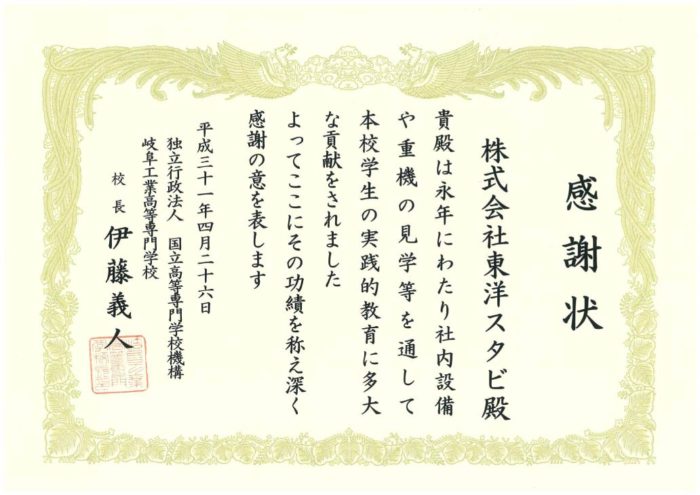 感謝状
株式会社東洋スタビ殿
貴殿は永年にわたり社内設備
や重機の見学等を通して
本校学生の実践的教育に多大
な貢献をされました
よってここにその功績を称え深く
感謝の意を表します
平成三十一年四月二十六日
独立行政法人 国立高等専門学校機構
岐阜工業高等専門学校
校長 伊藤義人